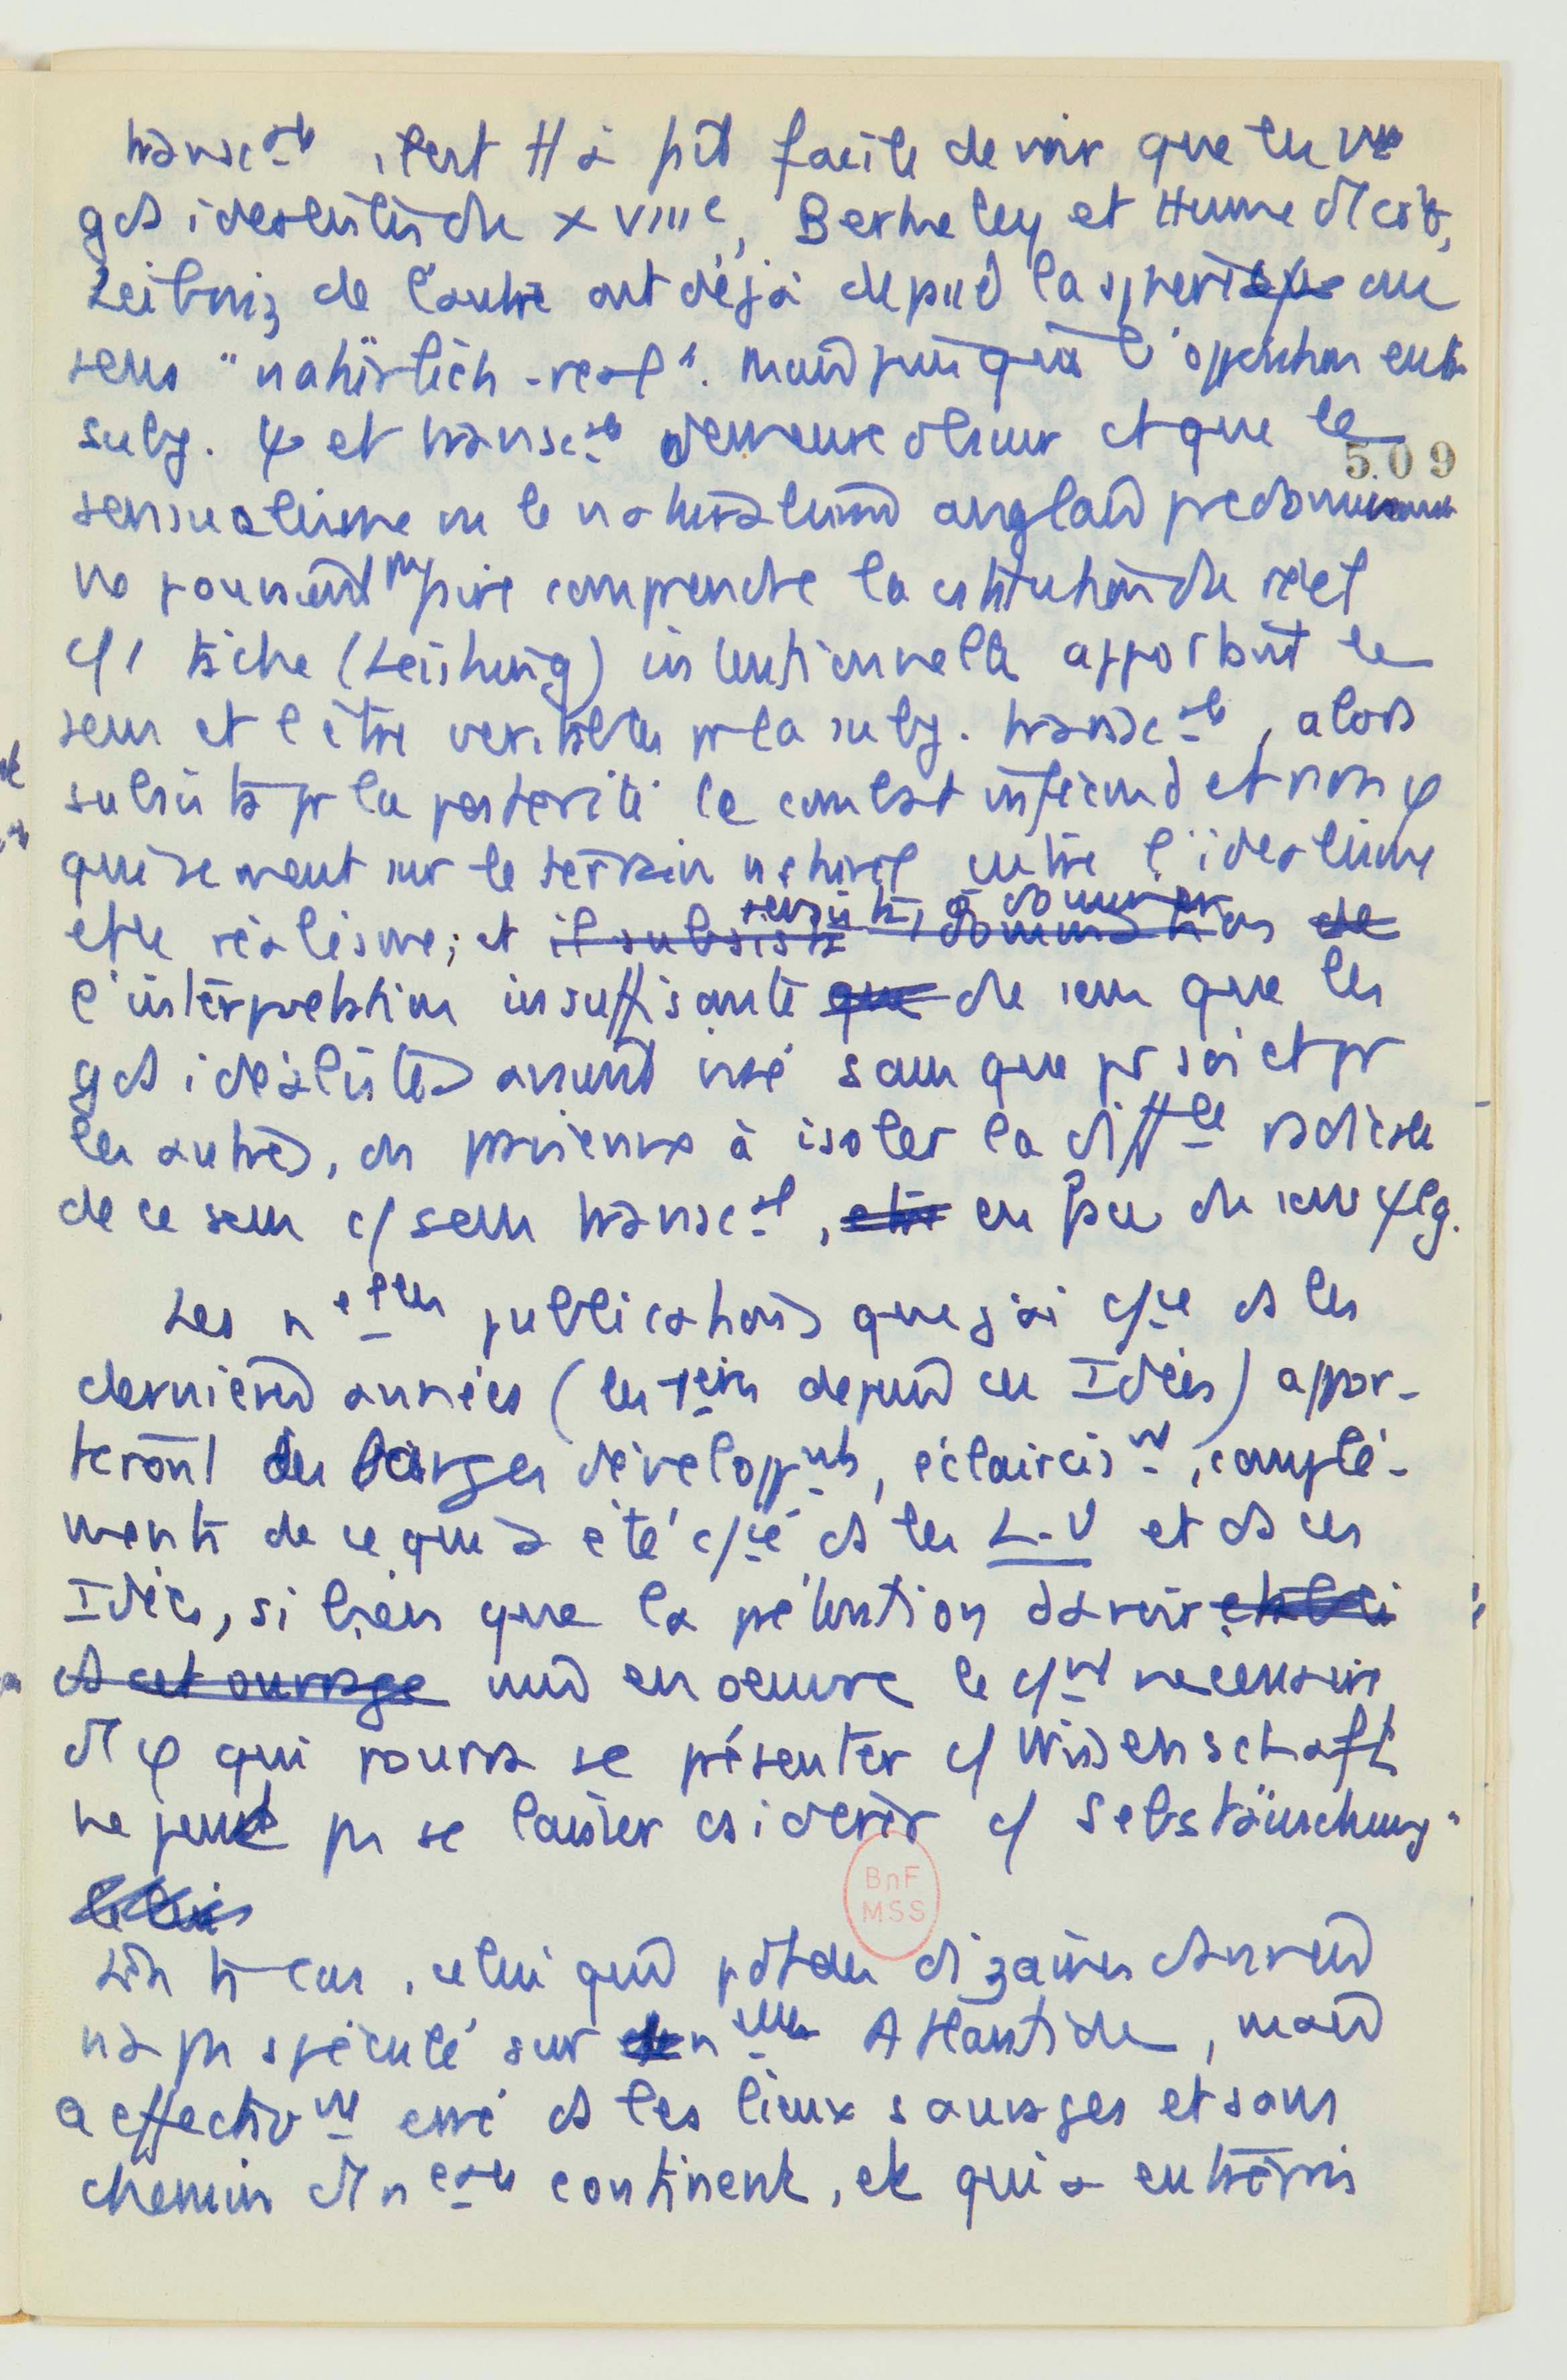 transc-le, il est tt à fait facile de voir que les vues
gds idéalistes du XVIIIe, Berkeley et Hume d'1 côté,
Leibniz de l'autre ont déjà dépassé la sphère du
sens "natürlich-real". Mais puisque l'opposition entre
subj. ψ et transc-le demeure obscure et que le
5.09
sensualisme ou le naturalisme anglais prédominant
ne pouvait pas faire comprendre la constitution du réel
c/ 1 tâche (Leistung) intentionnelle apportant le
sens et l'être véritables pr la subj. transc-le, alors
subsista pr la postérité le combat infécond et non φ
qui se meut sur le terrain naturel entre l'idéalisme
et le réalisme; et il subsiste domination de
subsista, à dominer
l'interprétation insuffisante que du sens que les
gds idéalistes avaient visé sans que pr soi et pr
les autres, ils parvienne à isoler la diffce radicale
de ce sens c/ sens transc-al, etre en face du sens ψlg.
Les nelles publications que j'ai c/cé ds les
dernières années (les 1ères depuis ces Idées) appor-
teront de larges développnts, éclairciss nt, complé-
ments de ce qui a été c/cé ds les L-U et ds ces
Idées, si bien que la prétention d'avoir établi
ds cet ouvrage mis en oeuvre le c/nt nécessaire
d'1 φ qui pourra se présenter c/ Wissenschaft
ne peut pas se laisser considérer c/ Selbstäuschung.
En ts cas, celui qui pdt des dizaines d'années
n'a pas spéculé sur 1 nelle Atlantide, mais
a effectivnt erré ds les lieux sauvages et sans
chemin d'1 neau continent, et qui a entrepris
BnF
MSS